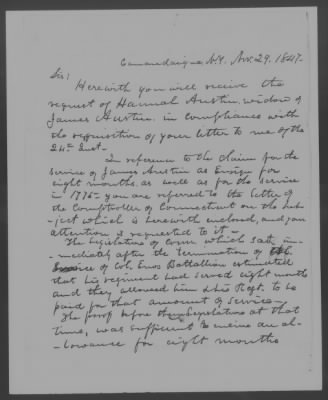 Canandaigua, N.Y. Nov. 29. 1847.
Sir;
Herewith you will receive the
request of Hannah Austin, widow of
James Austin, in compliance with
the requisition of your letter to me of the
24th Inst.
In reference to the claim for the
service of James Austin as Ensign for
eight months, as well as for the service
in 1775 you are referred to the letter of
the Comptroller of Connecticut on the sub-
-ject which is herewith enclosed, and your
attention is requested to it -
The Legislature of Conn which sat im-
-mediately after the termination of the
Service of Col. Enos Battallion estimated
that his regiment had served eight months
and they allowed him & his Regt. to be
paid for that amount of service -
The proof before the Legislature at that
time, was sufficient to ensure an al-
-lowance for eight months